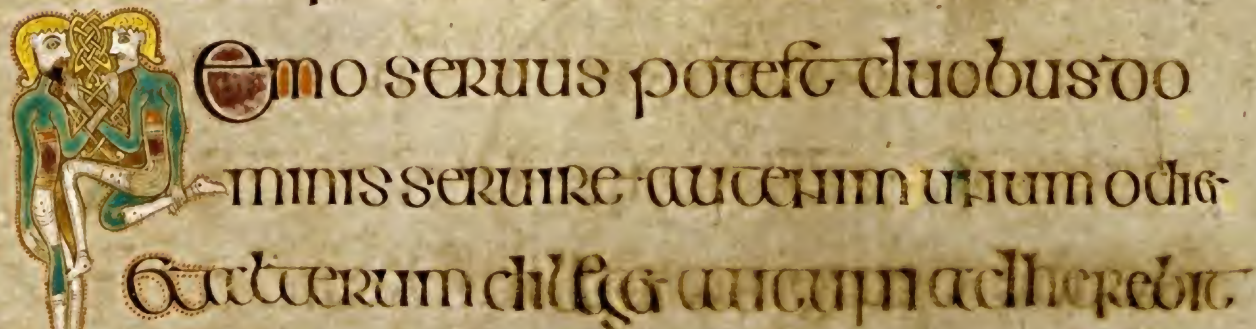 Nemo seruus potest duobus do
minis seruire autenim unum odiet
Et alterum diliget aut uni adherebit